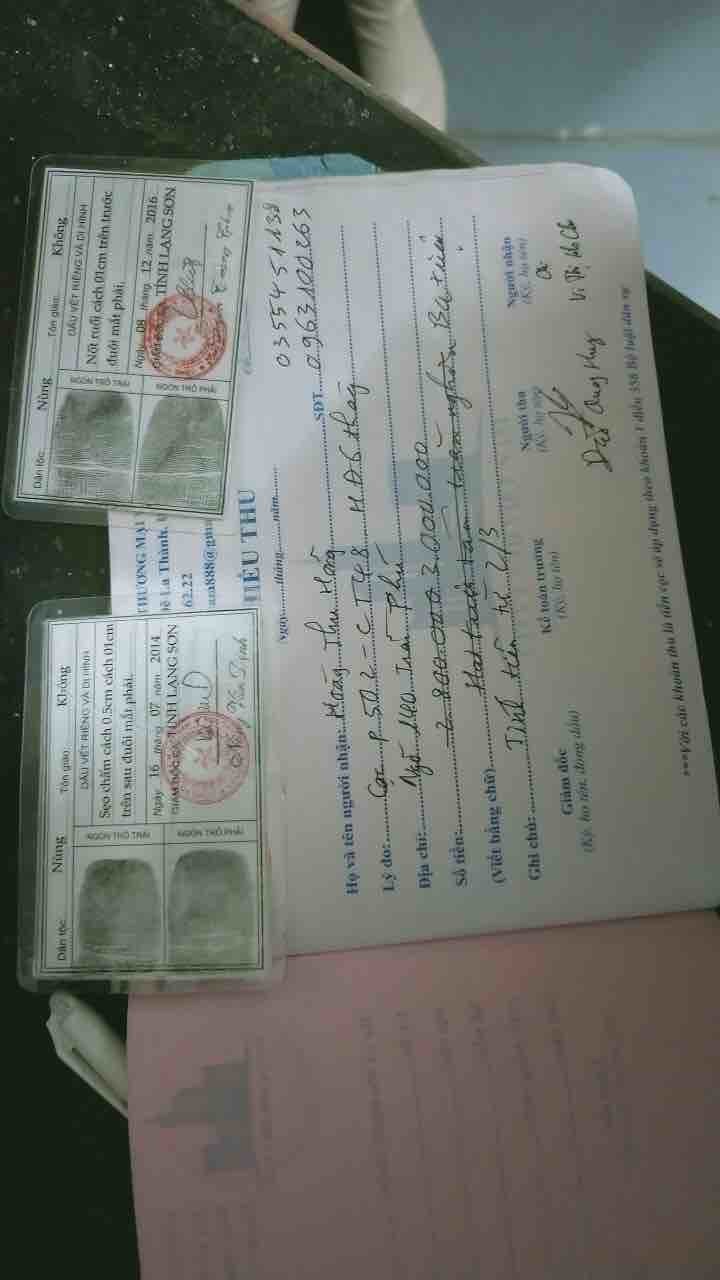 Dân tộc: Nùng Tôn giáo: Không
DẤU VẾT RIÊNG VÀ DỊ HÌNH
NGÓN TRỎ TRÁI
NGÓN TRỎ PHẢI
Sẹo chấm cách 0.5cm cách 01cm
trên sau đuôi mắt phải.
Ngày 16 tháng 07 năm 2014
GIÁM ĐỐC CA TỈNH LẠNG SƠN
Dân tộc: Nùng Tôn giáo: Không
DẤU VẾT RIÊNG VÀ DỊ HÌNH
NGÓN TRỎ TRÁI
NGÓN TRỎ PHẢI
Nốt ruồi cách 01cm trên trước
đuôi mắt phải.
Ngày 08 tháng 12 năm 2016
TỈNH LẠNG SƠN
THƯƠNG MẠI
Đê La Thành,
62.22
888@gma
IẾU THU
Ngày tháng năm
0355451138
Họ và tên người nhận: Hoàng Thu Hằng SĐT 0963100263
Lý do: Cọc P 502 - CT48 HĐ 6 tháng
Địa chỉ: Ngõ 140 Trần Phú
Số tiền: 2.800.000 3.000.000
(Viết bằng chữ) Hai triệu tám trăm nghìn Ba triệu
Ghi chú: Tính tiền từ 2/3
Giám đốc Kế toán trưởng Người thu Người nhận
(Ký, họ tên, đóng dấu) (Ký, họ tên) (Ký, họ tên) (Ký, họ tên)
Quang Huy Vi Thị
***Với các khoản thu là tiền cọc sẽ áp dụng theo khoản 1 điều 358 Bộ luật dân sự